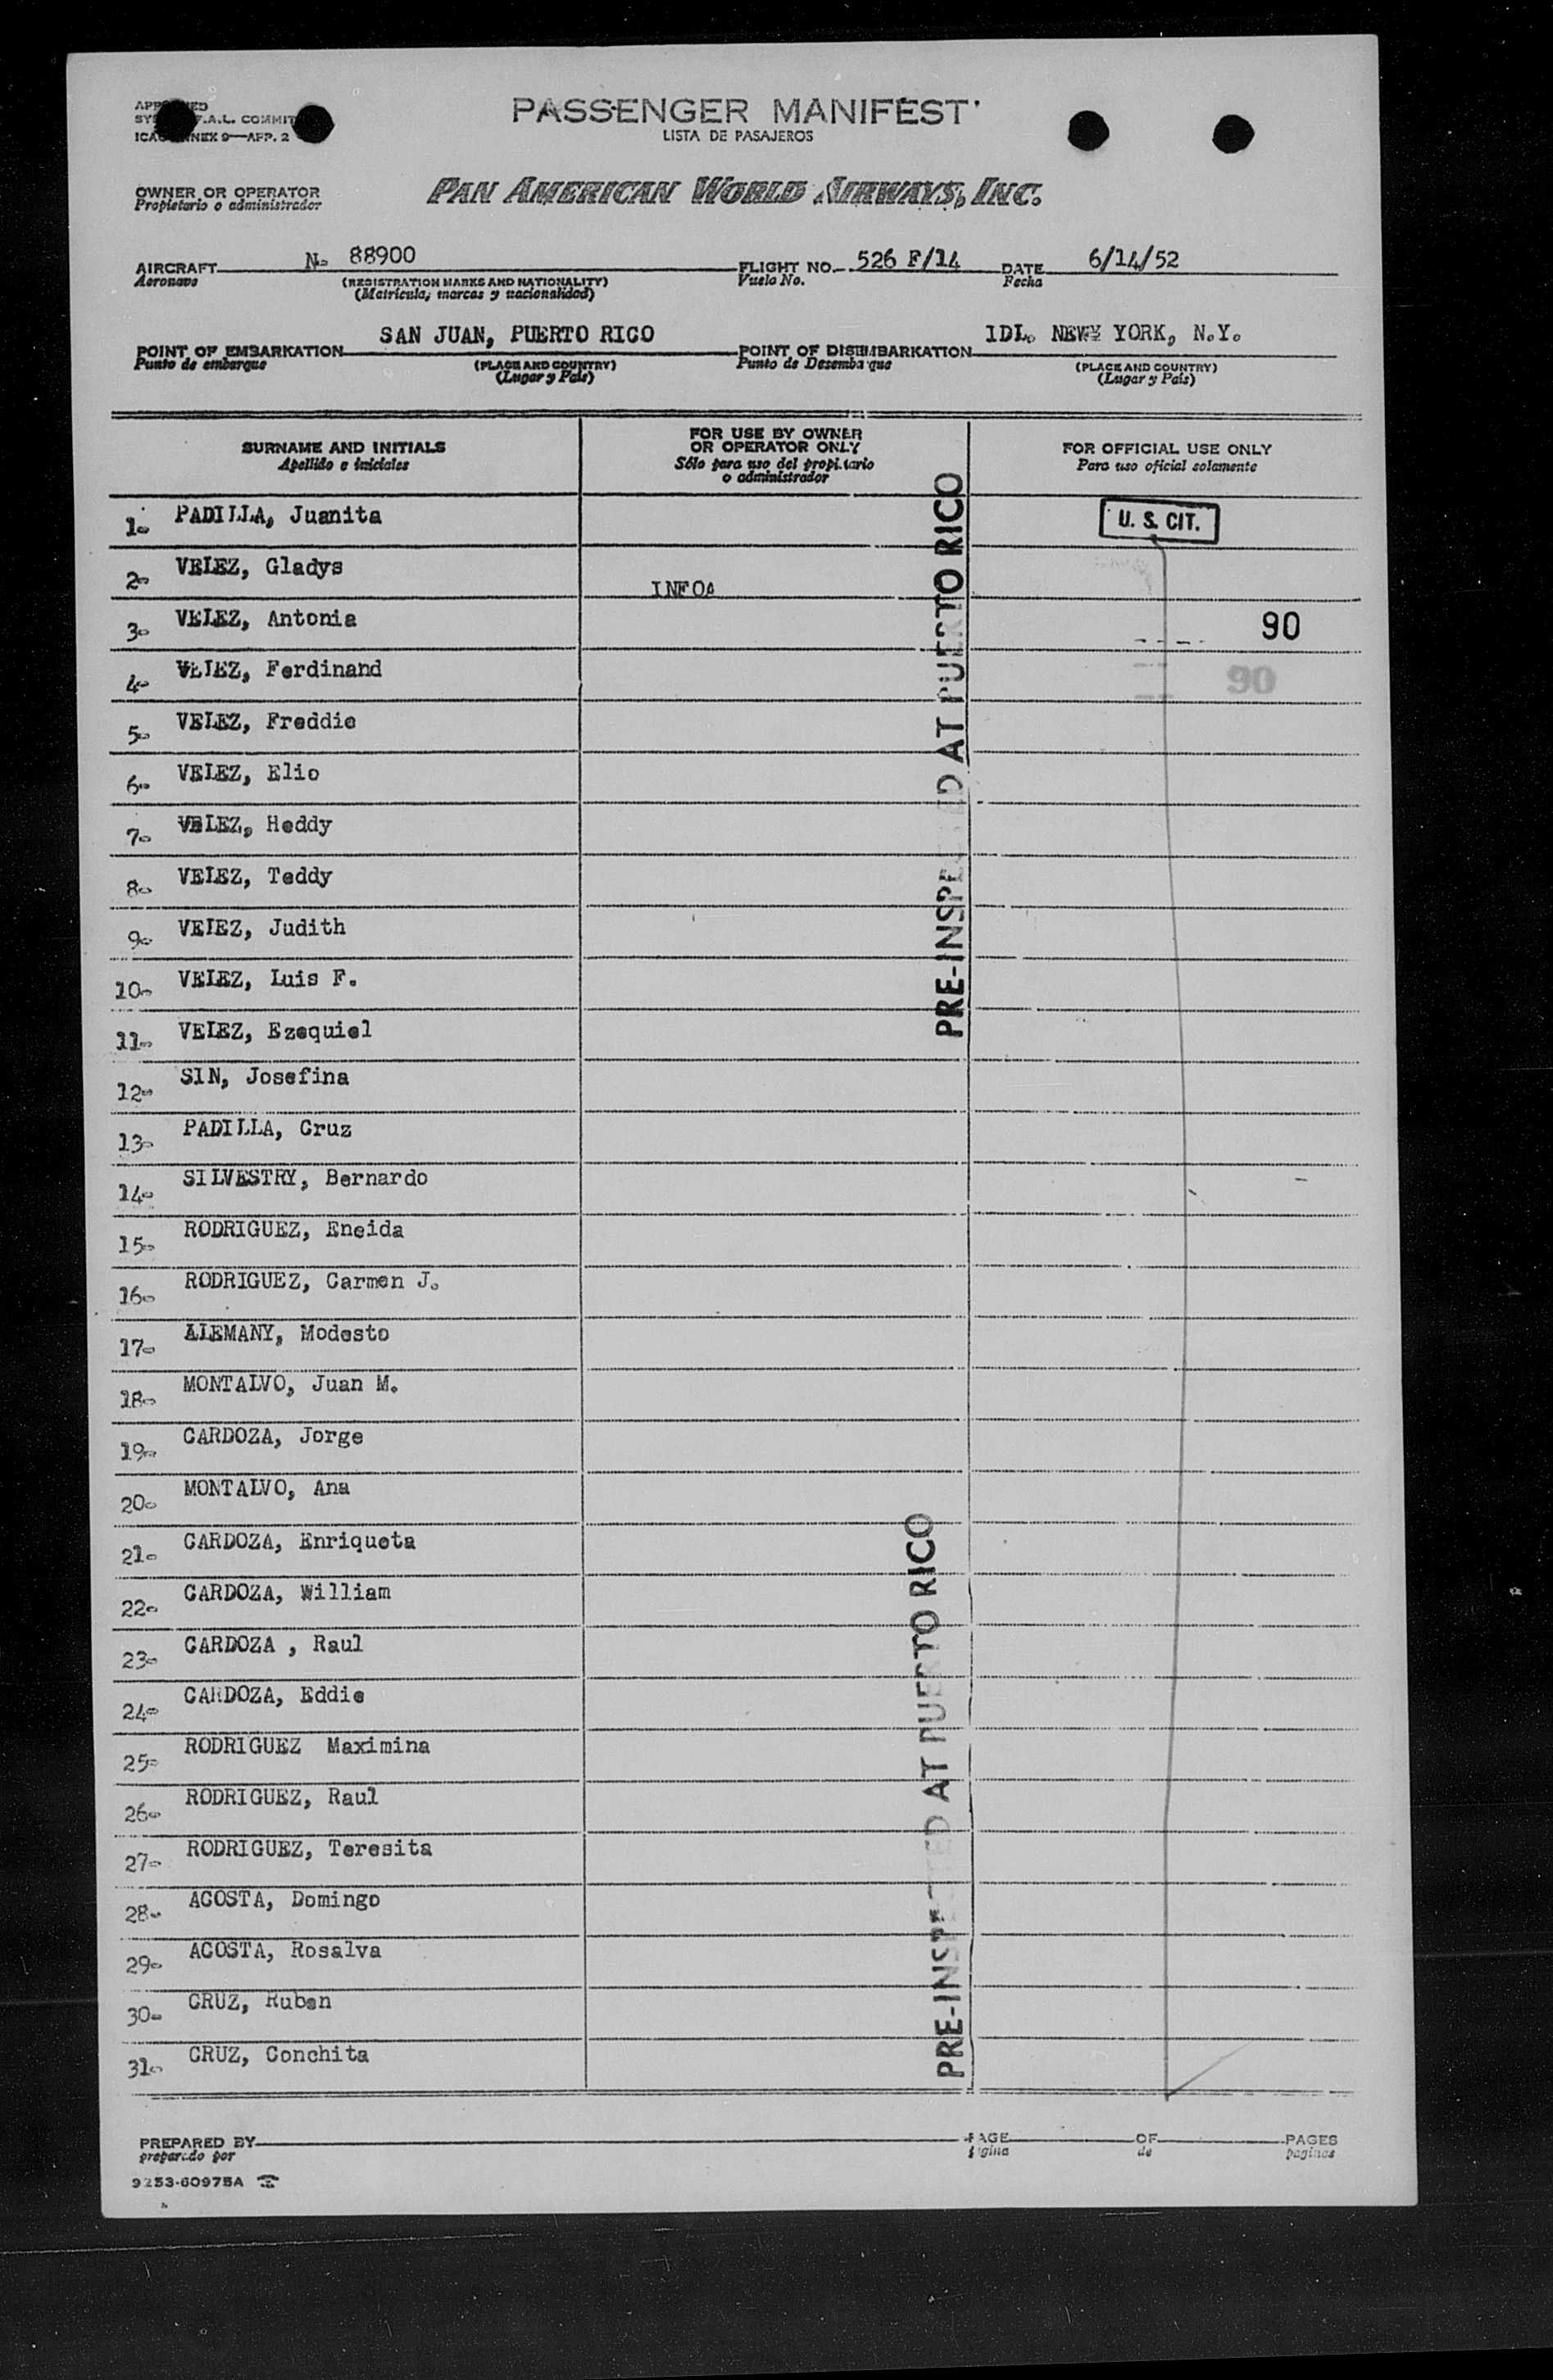 PASSENGER MANIFEST
LISTA DE PASAJEROS
ICA NNEX 9—APP. 2
OWNER OR OPERATOR
Propietario o administrador
PAN AMERICAN WORLD AIRWAYS, INC.
AIRCRAFT N- 88900 FLIGHT NO. 526 F/14 DATE 6/14/52
Aeronave (REGISTRATION MARKS AND NATIONALITY) Vuelo No. Fecha
(Matricula, marcas y nacionalidad)
POINT OF EMBARKATION SAN JUAN, PUERTO RICO POINT OF DISEMBARKATION 1DL. NEW YORK, N.Y.
Punto de embarque (PLACE AND COUNTRY) Punto de Desembarque (PLACE AND COUNTRY)
(Lugar y Pais) (Lugar y Pais)
SURNAME AND INITIALS FOR USE BY OWNER OR OPERATOR ONLY FOR OFFICIAL USE ONLY
Apellido e iniciales Sólo para uso del propietario o administrador Para uso oficial solamente
1- PADILLA, Juanita U. S. CIT.
2- VELEZ, Gladys
3- VELEZ, Antonia 90
4- VELEZ, Ferdinand 90
5- VELEZ, Freddie
6- VELEZ, Elio
7- VELEZ, Heddy
8- VELEZ, Teddy
9- VELEZ, Judith
10- VELEZ, Luis F.
11- VELEZ, Ezequiel
12- SIN, Josefina
13- PADILLA, Cruz
14- SILVESTRY, Bernardo
15- RODRIGUEZ, Eneida
16- RODRIGUEZ, Carmen J.
17- ALEMANY, Modesto
18- MONTALVO, Juan M.
19- CARDOZA, Jorge
20- MONTALVO, Ana
21- CARDOZA, Enriqueta
22- CARDOZA, William
23- CARDOZA , Raul
24- CARDOZA, Eddie
25- RODRIGUEZ Maximina
26- RODRIGUEZ, Raul
27- RODRIGUEZ, Teresita
28- ACOSTA, Domingo
29- ACOSTA, Rosalva
30- CRUZ, Ruben
31- CRUZ, Conchita
PRE-INSPECTED AT PUERTO RICO
PRE-INSPECTED AT PUERTO RICO
PREPARED BY PAGE OF PAGES
preparado por pagina de paginas
9253-60975A